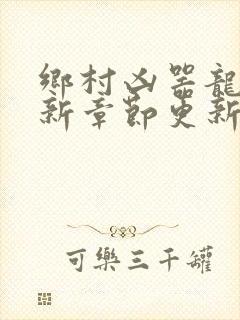 鄉村凶器龍
新章節更新
可樂三千罐